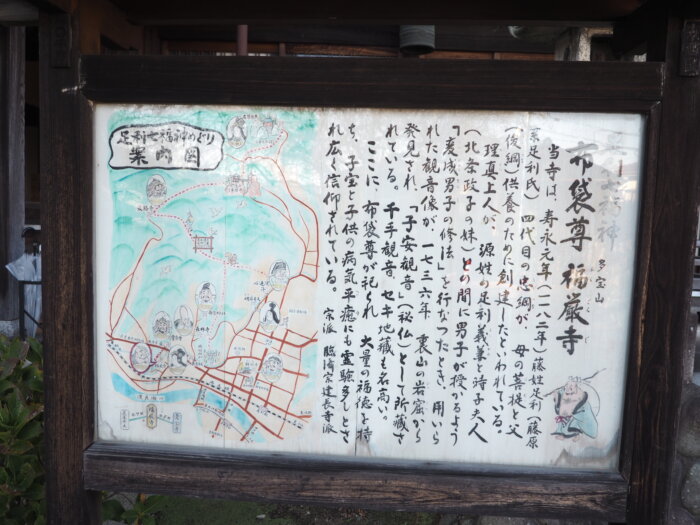 足利七福神
多宝山
布袋尊 福厳寺
当寺は、寿永元年(一一八二年)藤姓足利(藤原
系足利氏) 四代目の忠綱が 母の菩提と父
(俊綱)供養のために創建したといわれている。
理真上人が、源姓の足利義兼と時子夫人
(北条政子の妹)との間に男子が授かるよう
「変成男子の修法」を行なったとき、用いら
れた観音像が、一七三六年 裏山の岩窟から
発見され、「子安観音」(秘仏)として所蔵さ
れている。千手観音 セキ地蔵も名高い。
ここに、布袋尊が祀られ 大量の福徳を持
ち、子宝と子供の病気平癒にも霊験多しとさ
れ広く信仰されている。
宗派 臨済宗建長寺派
足利七福神めぐり
案内図